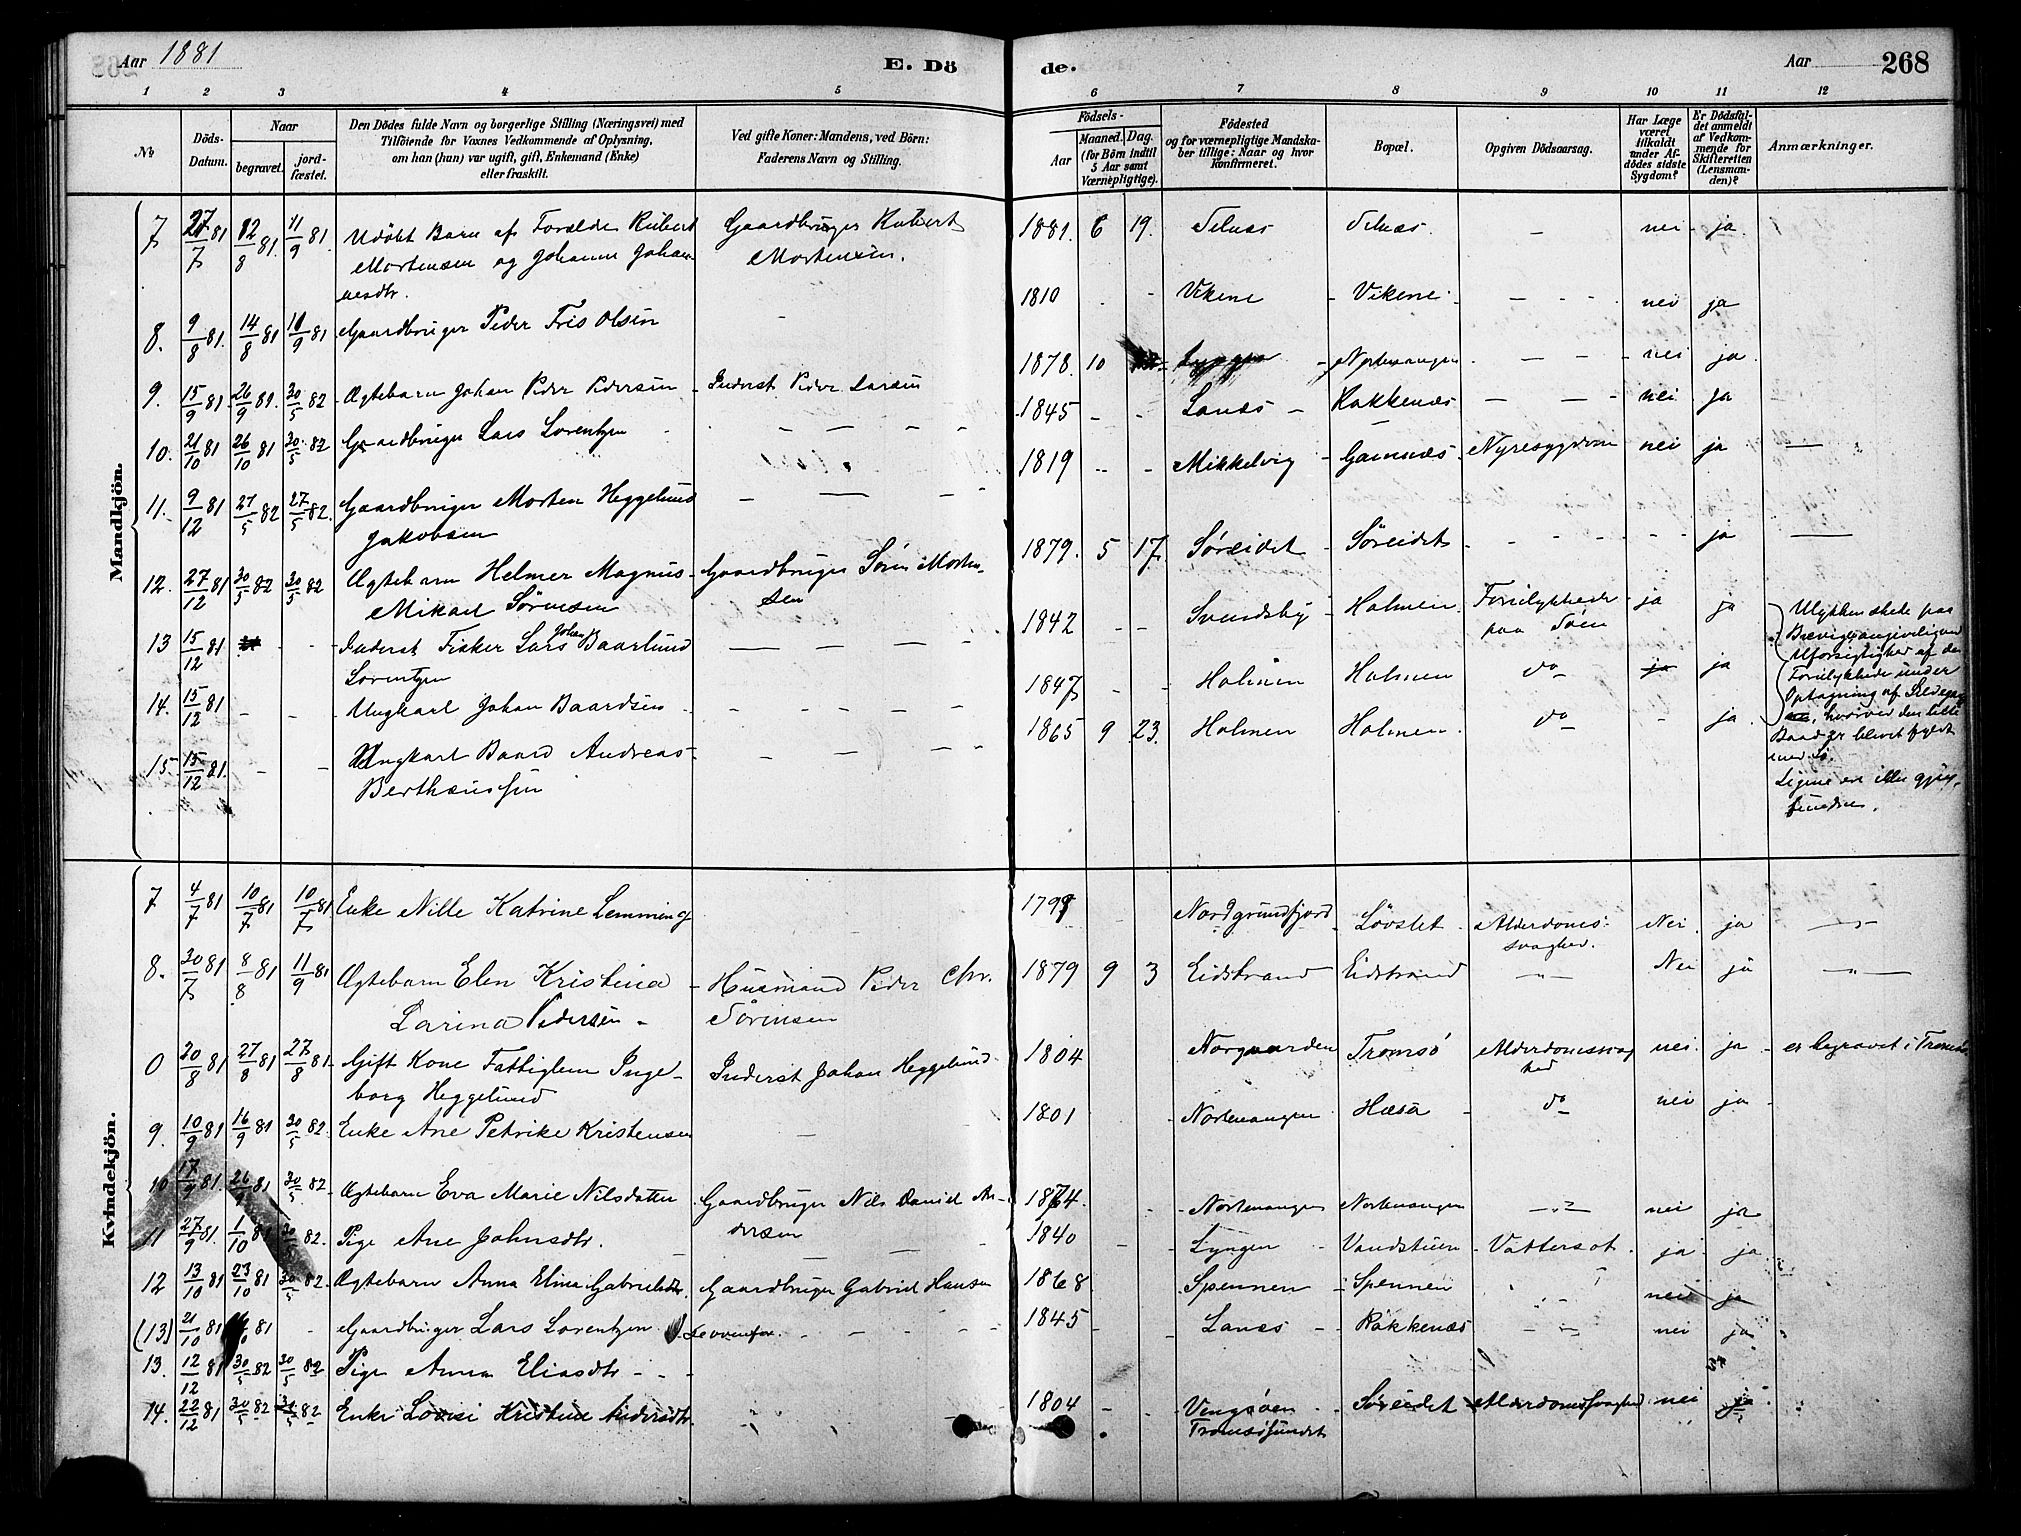 Aar 1881 E. Dö de. Aar 268
1 2 3 4 5 6 7 8 9 10 11 12
№
Döds-Datum.
Naar
begravet.
jordfæstet.
Den Dödes fulde Navn og borgerlige Stilling (Næringsvei) med
Tilföiende for Voxnes Vedkommende af Oplysning,
om han (han) var ugift, gift, Enkemand (Enke)
eller fraskilt.
Ved gifte Koner: Mandens, ved Börn:
Faderens Navn og Stilling.
Födsels-
Aar
Maaned. Dag.
(for Börn indtil
5 Aar samt
Værnepligtige).
Födested
og for værnepligtige Mandska-
ber tillige: Naar og hvor
Konfirmeret.
Bopæl.
Opgiven Dödsaarsag.
Har Læge
været
tilkaldt
under Af-
dödes sidste
Sygdom?
Er Dödsfal-
det anmeldt
af Vedkom-
mende for
Skifteretten
(Lensman-
den)?
Anmærkninger.
Mandkjön.
7 27/7 81 12/8 81. 11/9 81. Udöbt Barn af Forældre Robert Gaardbruger Robert 1881. 6 19. Selnæs Selnæs. - nei - ja
Mortensen og Johanna Johan- Mortensen.
nesdtr.
8. 9/8 81. 14/8 81 11/9 81 Gaardbruger Peder Fris Olsen - 1810 - - Vikene - Vikene - - nei ja
9. 15/9 81. 26/9 81. 30/5 82 Ægtebarn Johan Peder Pedersen - Inderst Peder Larsen 1878. 10 - - - nei ja
10. 21/10 81 26/10 81 30/5 82 Gaardbruger Lars Lorentzen 1845 - - Lanæs - Kakkenæs - - nei ja
11. 9/12 81 27/5 82 27/5 82. Gaardbruger Morten Heggelund - 1819 - - Mikkelvig - Gamnæs - Nyresygdom nei ja -
Jakobsen
12. 27/12 81 30/5 82 30/5 82 Ægtebarn Helmer Magnus - Gaardbruger Sören Morten- 1879. 5 17. Söreidet - Söreidet - - - ja -
Mikael Sörensen sen
13 15/12 81 - - Inderst Fisker Lars Johan Baarlund - 1842 - - Svendsby - Holmen. Forulykkede paa Söen - ja ja
Lorentzen
14. 15/12 81 - - Ungkarl Johan Baardsen - 1847 - - Holmen Holmen do ja ja
15. 15/12 81. - - Ungkarl Baard Andreas - 1865 9 23. Holmen Holmen. do - ja
Berthæussen
Ulykken skede paa
Uforsigtighed af de
Forulykkede under
Optagning af
hvorved den lille
Baad er blevet fyldt
med Sö.
Ligene ere ikke gjen-
fundne.
Kvindekjön.
7 4/7 81 10/7 81 10/7 81 Enke Nille Katrine Lemming - Nordgrundfjord - Lövslet - Alderdoms- Nei. ja -
svaghed.
8. 30/7 81 8/8 81 11/9 81 Ægtebarn Elen Kristina - Husmand Peder Chr. 1879 9 3 Eidstrand Eidstrand -"- Nei ja -"-
Larina Pedersen - Sörensen
0 20/8 81 27/8 81 27/8 81. Gift Kone Fattiglem Inge- Inderst Johan Heggelund 1804 Norgaarden Tromsö Alderdomssvag- nei ja - er begravet i Tromsö
borg Heggelund hed
9. 10/9 81 16/9 81 30/5 82. Enke Ane Petrike Kristensen - 1801 - Nortenangen Hæsö - do nei ja -
10 17/9 81. 26/9 81 30/5 82 - Ægtebarn Eva Marie Nilsdatter Gaardbruger Nils Daniel An- 1874. - Nortenangen Nortenangen -"- nei ja
dersen
11 27/9 81. 1/10 81 30/5 82. Pige Ane Johnsdtr. - 1840 - - Lyngen - Vandstuen - Vattersot. ja ja
12 13/10 81 23/10 81 30/5 82. Ægtebarn Anna Elina Gabrielsdtr. Gaardbruger Gabriel Hansen 1868 - Spennen - Spennen - nei ja
(13) 21/10 81 81 - Gaardbruger Lars Lorentzen Se ovenfor. - 1845 - - Lanæs - Kakkenæs - nei ja
13. 12/12 81 30/5 82 30/5 82 Pige Anna Eliasdtr - - -
14. 22/12 81 30/5 82 30/5 82 Enke Lovise Kristine Andersdtr. 1804 - - Vengsöen - Söreidet Alderdomssvaghed nei ja
Tromsösundet